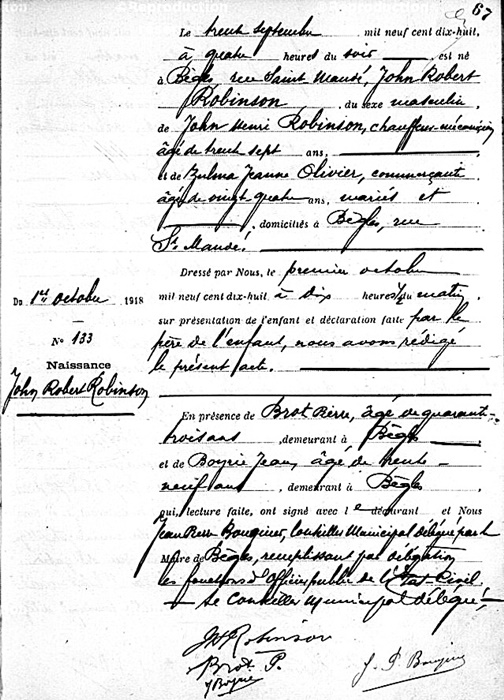 ©Reproduction
©Reproduction
67
Le trente septembre mil neuf cent dix-huit,
à quatre heures du soir est né
à Bègles, rue Saint Maudé, John Robert
Robinson du sexe masculin
de John Henri Robinson, chauffeur-mécanicien
âgé de trente sept ans,
et de Zulma Jeanne Olivier, commerçante
âgée de vingt quatre ans, mariés et
, domiciliés à Bègles, rue
St Maudé.
Dressé par Nous, le premier octobre
mil neuf cent dix-huit à dix heures 1/2 du matin
sur présentation de l'enfant et déclaration faite par le
père de l'enfant, nous avons rédigé
le présent acte.
Du 1er octobre 1918
N° 133
Naissance
John Robert Robinson
En présence de Brot Pierre, âgé de quarante-
trois ans, demeurant à Bègles
et de Boyrie Jean, âgé de trente-
neuf ans, demeurant à Bègles
qui, lecture faite, ont signé avec le déclarant et Nous
Jean Pierre, Conseiller Municipal délégué par le
Maire de Bègles, remplissant par délégation
les fonctions d'Officier public de l'État-Civil.
Le Conseiller Municipal délégué,
Robinson
Brot P.
J Boyrie
J. P.